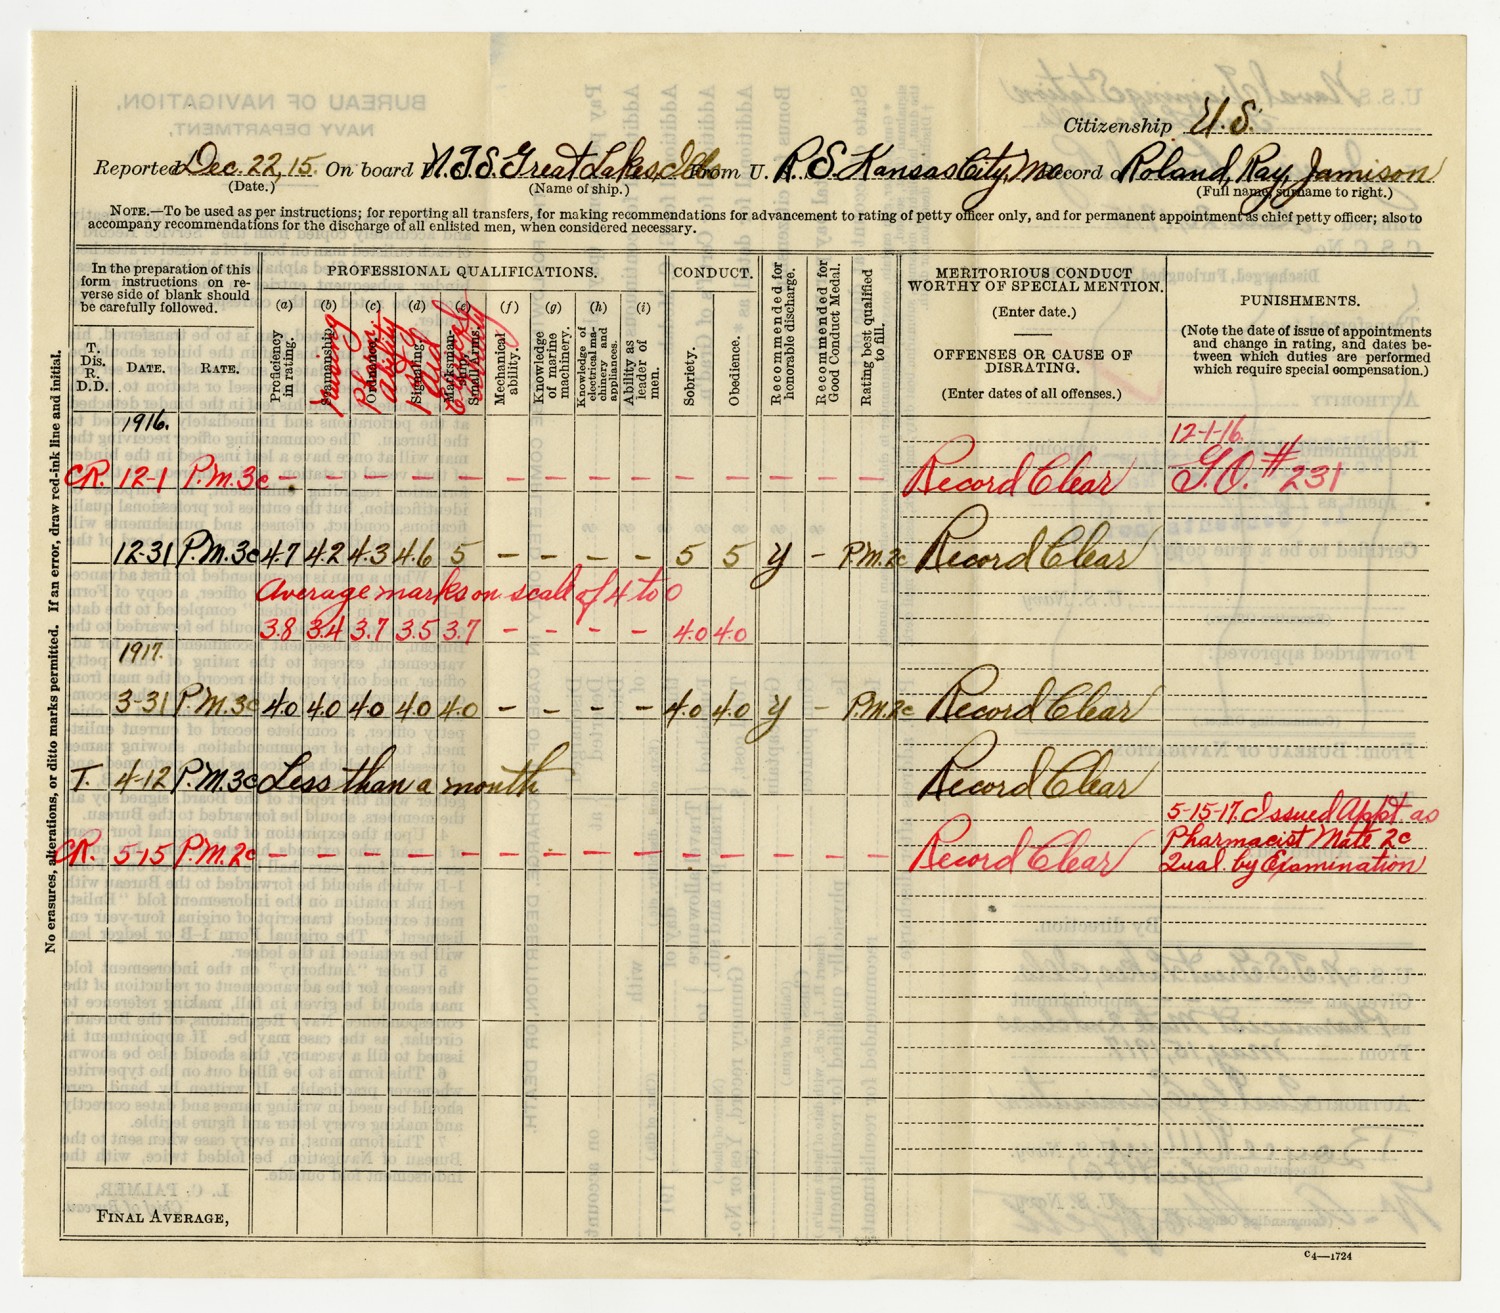 Citizenship U.S.
Reported Dec. 22, 15. On board N.T.S. Great Lakes, Ills from U. R.S. Kansas City, Mo Record of Roland, Ray Jamison
(Date.) (Name of ship.) (Full name, surname to right.)
NOTE.—To be used as per instructions; for reporting all transfers, for making recommendations for advancement to rating of petty officer only, and for permanent appointment as chief petty officer; also to
accompany recommendations for the discharge of all enlisted men, when considered necessary.
No erasures, alterations, or ditto marks permitted. If an error, draw red-ink line and initial.
In the preparation of this
form instructions on re-
verse side of blank should
be carefully followed.
T.
DIS.
R.
D.D.
DATE.
RATE.
PROFESSIONAL QUALIFICATIONS.
(a) (b) (c) (d) (e) (f) (g) (h) (i)
Proficiency
in rating.
Seamanship.
Nursing
Ordnance.
Ability
Signaling.
Marksman-
ship,
Small Arms.
Mechanical
ability.
Knowledge
of marine
machinery.
Knowledge of
electrical ma-
chinery and
appliances.
Ability as
leader of
men.
CONDUCT.
Sobriety.
Obedience.
Recommended for
honorable discharge.
Recommended for
Good Conduct Medal.
Rating best qualified
to fill.
MERITORIOUS CONDUCT
WORTHY OF SPECIAL MENTION.
(Enter date.)
OFFENSES OR CAUSE OF
DISRATING.
(Enter dates of all offenses.)
PUNISHMENTS.
(Note the date of issue of appointments
and change in rating, and dates be-
tween which duties are performed
which require special compensation.)
1916.
12-1-16.
CR. 12-1 P.M.3c – – – – – – – – – – – – – – Record Clear G.O. #231
12-31 P.M.3c 4.7 4.2 4.3 4.6 5 – – – – 5 5 y – P.M.2c Record Clear
Average marks on scale of 4 to 0
3.8 3.4 3.7 3.5 3.7 – – – – 4.0 4.0
1917.
3-31 P.M.3c 4.0 4.0 4.0 4.0 4.0 – – – – 4.0 4.0 y – P.M.2c Record Clear
T. 4-12 P.M.3c Less than a month Record Clear
5-15-17. Issued Appt. as
Pharmacist Mate 2c
CR. 5-15 P.M.2c – – – – – – – – – – – – – – Record Clear Qual. by Examination
FINAL AVERAGE,
C4—1724